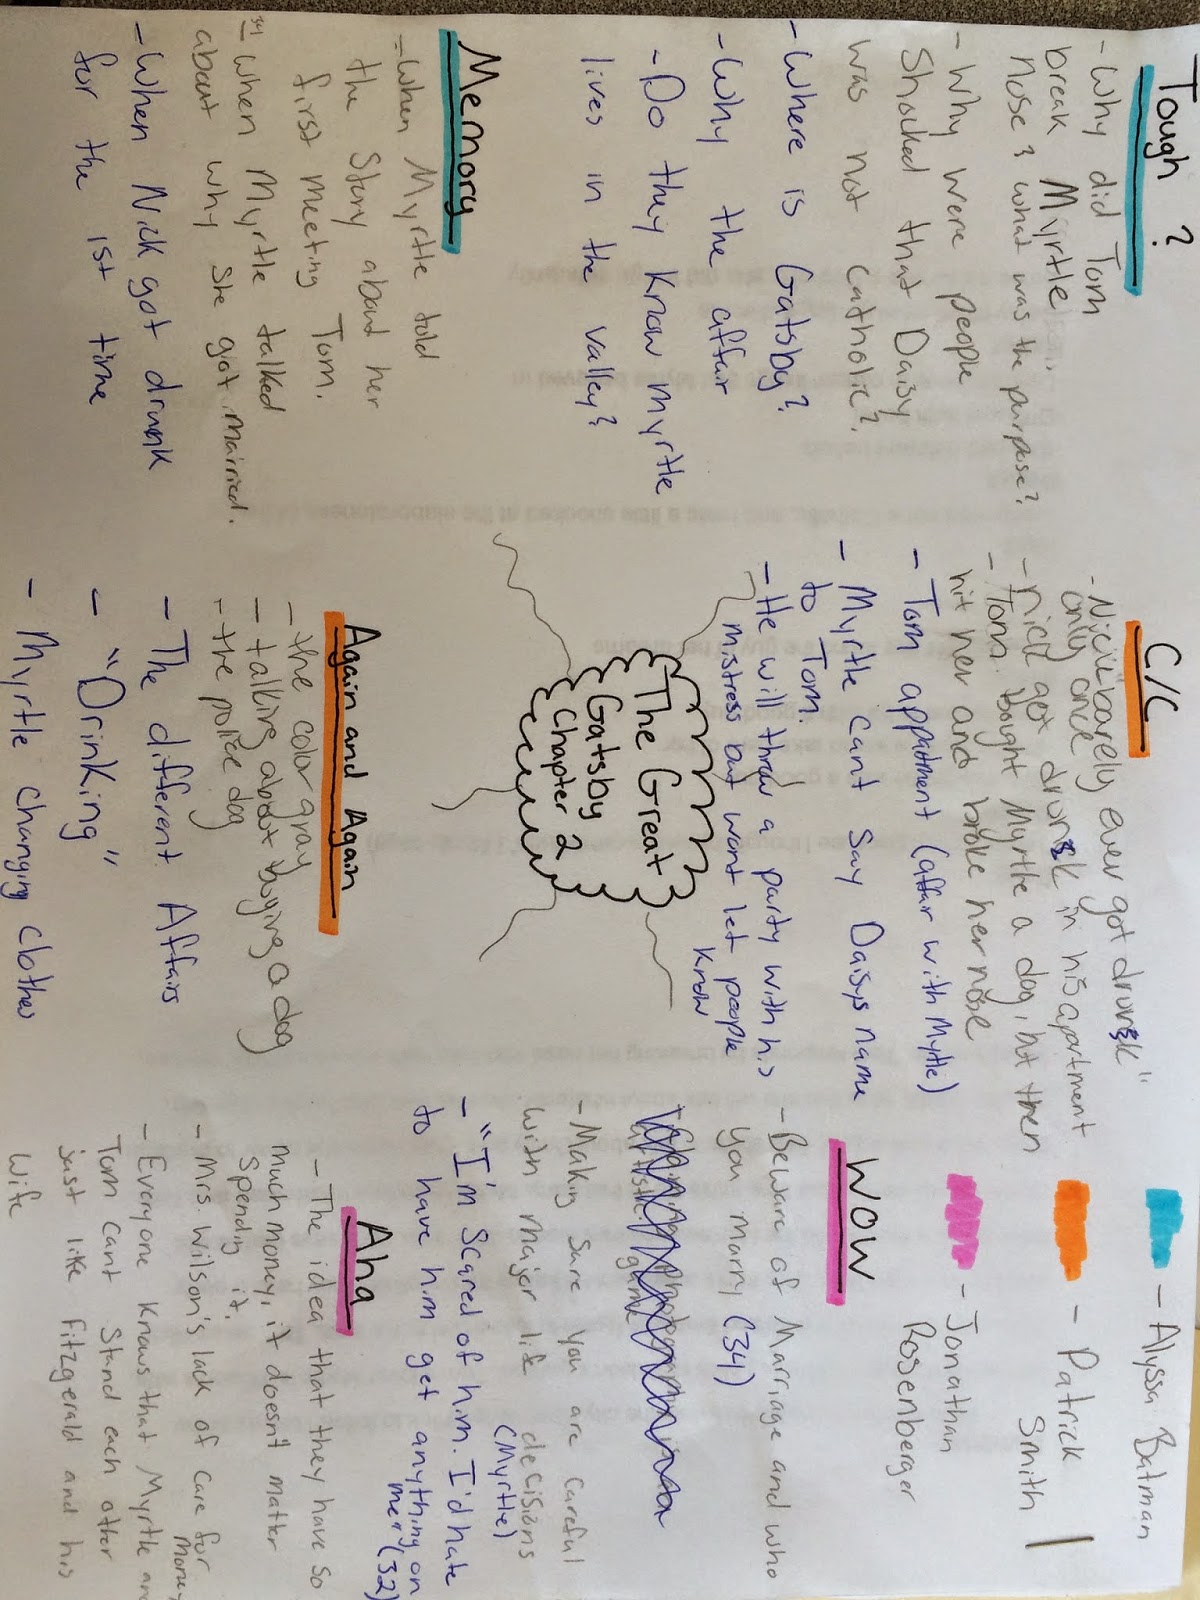 Tough ?
- Why did Tom
break Myrtle's
nose & what was the purpose?
- Why were people
Shocked that Daisy
was not catholic?
- Where is Gatsby?
- Why the affair
- Do they know myrtle
lives in the valley?
Memory
- When Myrtle told
the Story about her
first meeting Tom.
34
- When Myrtle talked
about why She got married.
- When Nick got drunk
for the 1st time
C/C
- Nick "barely ever got drunk"
only once
- nick got drunk in his apartment
- Tom bought Myrtle a dog, but then
hit her and broke her nose
- Tom appartment (affair with Myrtle)
- Myrtle cant say Daisys name
to Tom
- He will throw a party with his
mistress but wont let people
know
The Great
Gatsby
Chapter 2
Again and Again
- the color gray
- talking about buying a dog
- the police dog
- The different Affairs
- "Drinking"
- Myrtle changing clothes
- Alyssa Batman
- Patrick
Smith
- Jonathan
Rosenberger
WOW
- Beware of Marriage and who
you marry (34)
- Making sure you are careful
with major life decisions
(Myrtle)
- "I'm scared of him. I'd hate
to have him get anything on
me" (32)
Aha
- The idea that they have so
much money, it doesn't matter
spending it.
- Mrs. Wilson's lack of care for
money
- Everyone knows that Myrtle and
Tom cant Stand each other
just like Fitzgerald and his
wife